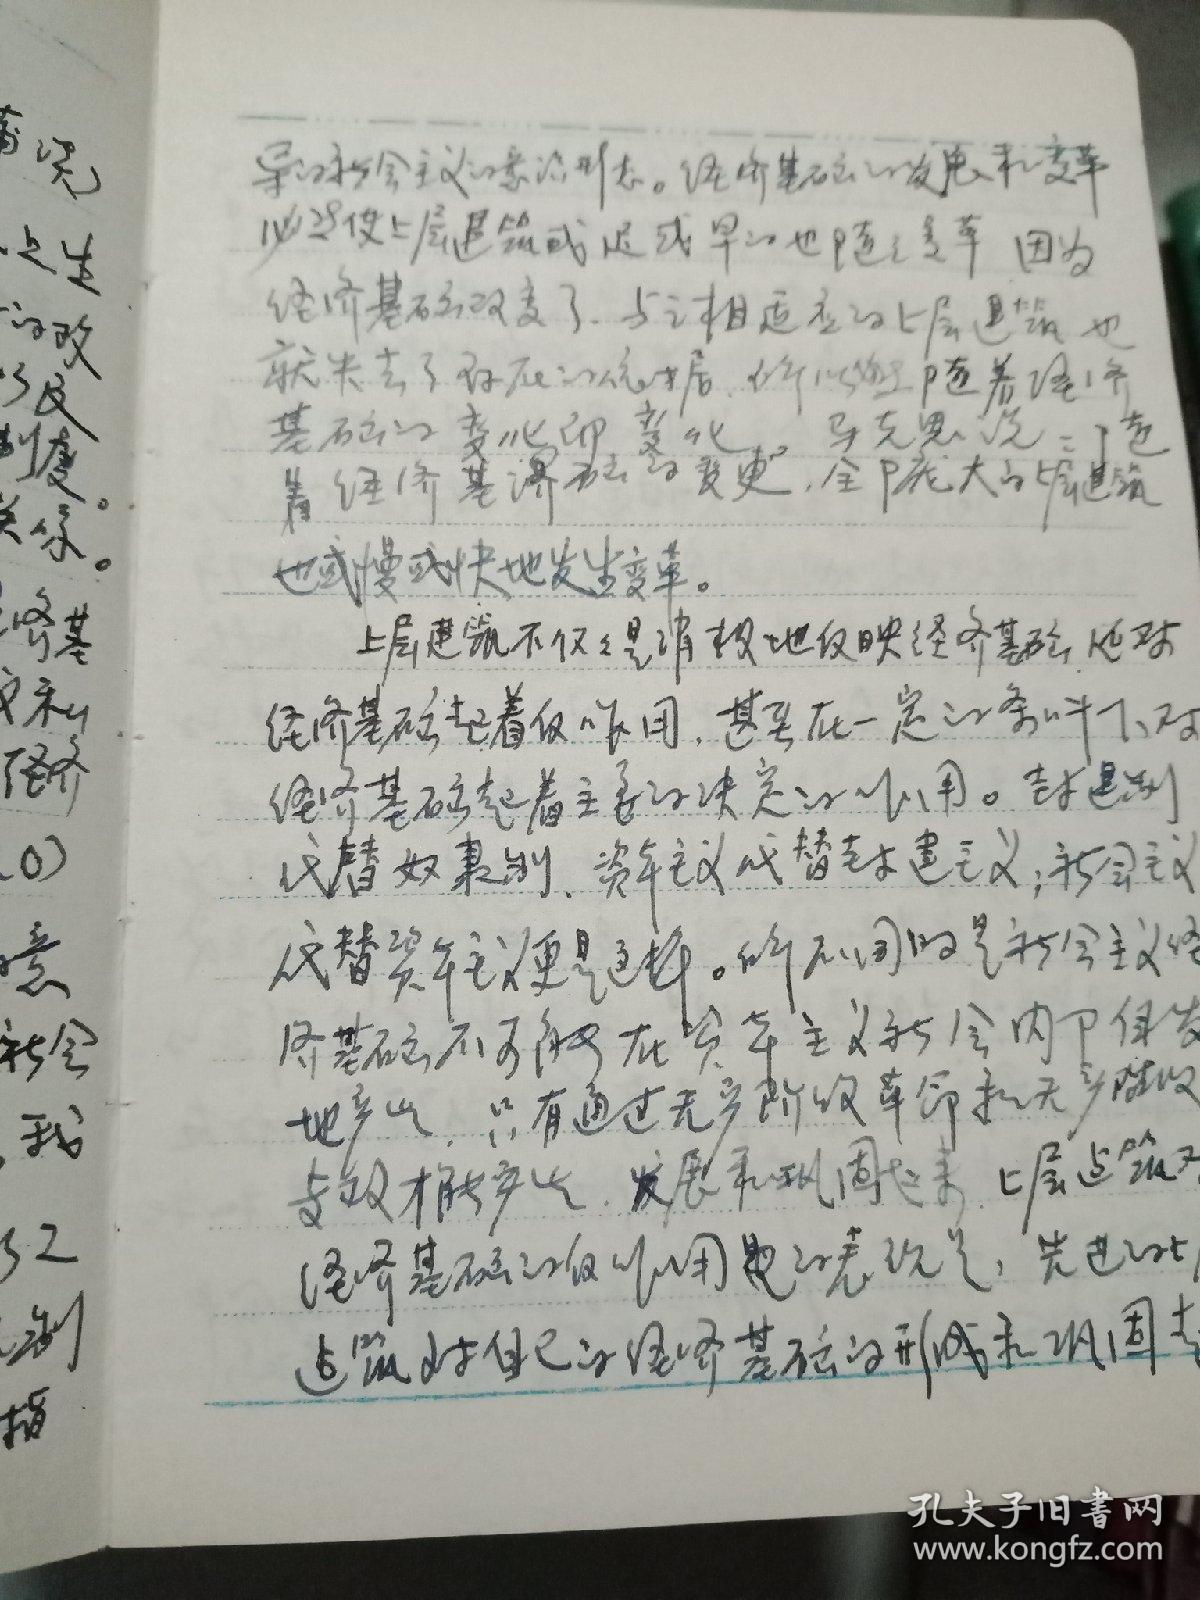 导的社会主义的意识形态。经济基础的发展和变革
必然使上层建筑或迟或早的也随之变革 因为
经济基础改变了、与之相适应的上层建筑也
就失去了存在的依据、所以 随着经济
基础的变化即变化。马克思说：“随
着经济基础的变更，全部庞大的上层建筑
也或慢或快地发生变革。
上层建筑不仅仅是消极地反映经济基础，还对
经济基础起着反作用，甚至在一定的条件下，对
经济基础起着主要的决定的作用。封建制
代替奴隶制、资本主义代替封建主义；社会主义
代替资本主义更是这样。所不同的是社会主义经
济基础不可能在资本主义社会内部自发
地产生，只有通过无产阶级革命和无产阶级
专政才能产生、发展和巩固起来，上层建筑对
经济基础的反作用 表现是，先进的上
建筑对自己的经济基础的形成和巩固
蒲
点 生
的政
反
制度。
关系。
经济基
和
经济
意
社会
我
制
指
孔夫子旧书网
www.kongfz.com